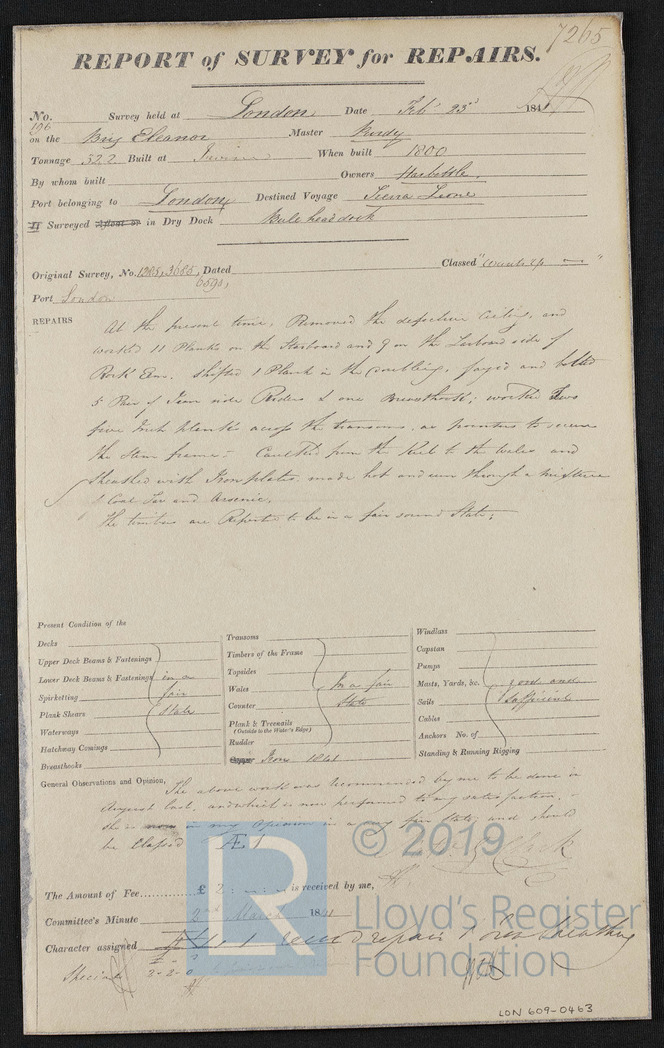 7265
REPORT of SURVEY for REPAIRS.
No. 196 Survey held at London Date Feb 23d 1841
on the Brig Eleanor Master Purdy
Tonnage 322 Built at When built 1800
By whom built Owners
Port belonging to London Destined Voyage Sierra Leone
If Surveyed afloat or in Dry Dock Bulls head dock
Original Survey, No. 1285, 3685, 6591, Dated Classed "
Port London
REPAIRS At the present time, Removed the defective Ceiling, and
worked 11 Planks on the Starboard and 9 on the Larboard side of
Rock Elm. Shifted 1 Plank in the doubling, fayed and bolted
5 Pair of Iron side Riders & one Breasthook; worked two
five Inch Planks across the transoms, as pointers to secure
the Stern frame; Caulked from the Keel to the Wales and
Sheathed with Iron plates made hot and run through a mixture
of Coal Tar and Arsenic.
The timbers are Reported to be in a fair sound State;
Present Condition of the
Decks
Upper Deck Beams & Fastenings
Lower Deck Beams & Fastenings in a
Spirketting fair
Plank Shears State
Waterways
Hatchway Comings
Breasthooks
Transoms
Timbers of the Frame
Topsides
Wales In a fair
Counter State
Plank & Treenails
(Outside to the Water's Edge)
Rudder
Copper Iron 1841
Windlass
Capstan
Pumps
Masts, Yards, &c. good and
Sails Sufficient
Cables
Anchors No. of
Standing & Running Rigging
General Observations and Opinion, The above work was recommended by me to be done in
August last, and which is now performed to my satisfaction,
she is now in my Opinion in a fair State, and should
be Classed Æ 1
The Amount of Fee £ 2 : - : - is received by me,
Committee's Minute 2nd March 1841
Character assigned Æ 1
Special 2-2-0
© 2019
Lloyd's Register
Foundation
LR
LON 609-0463